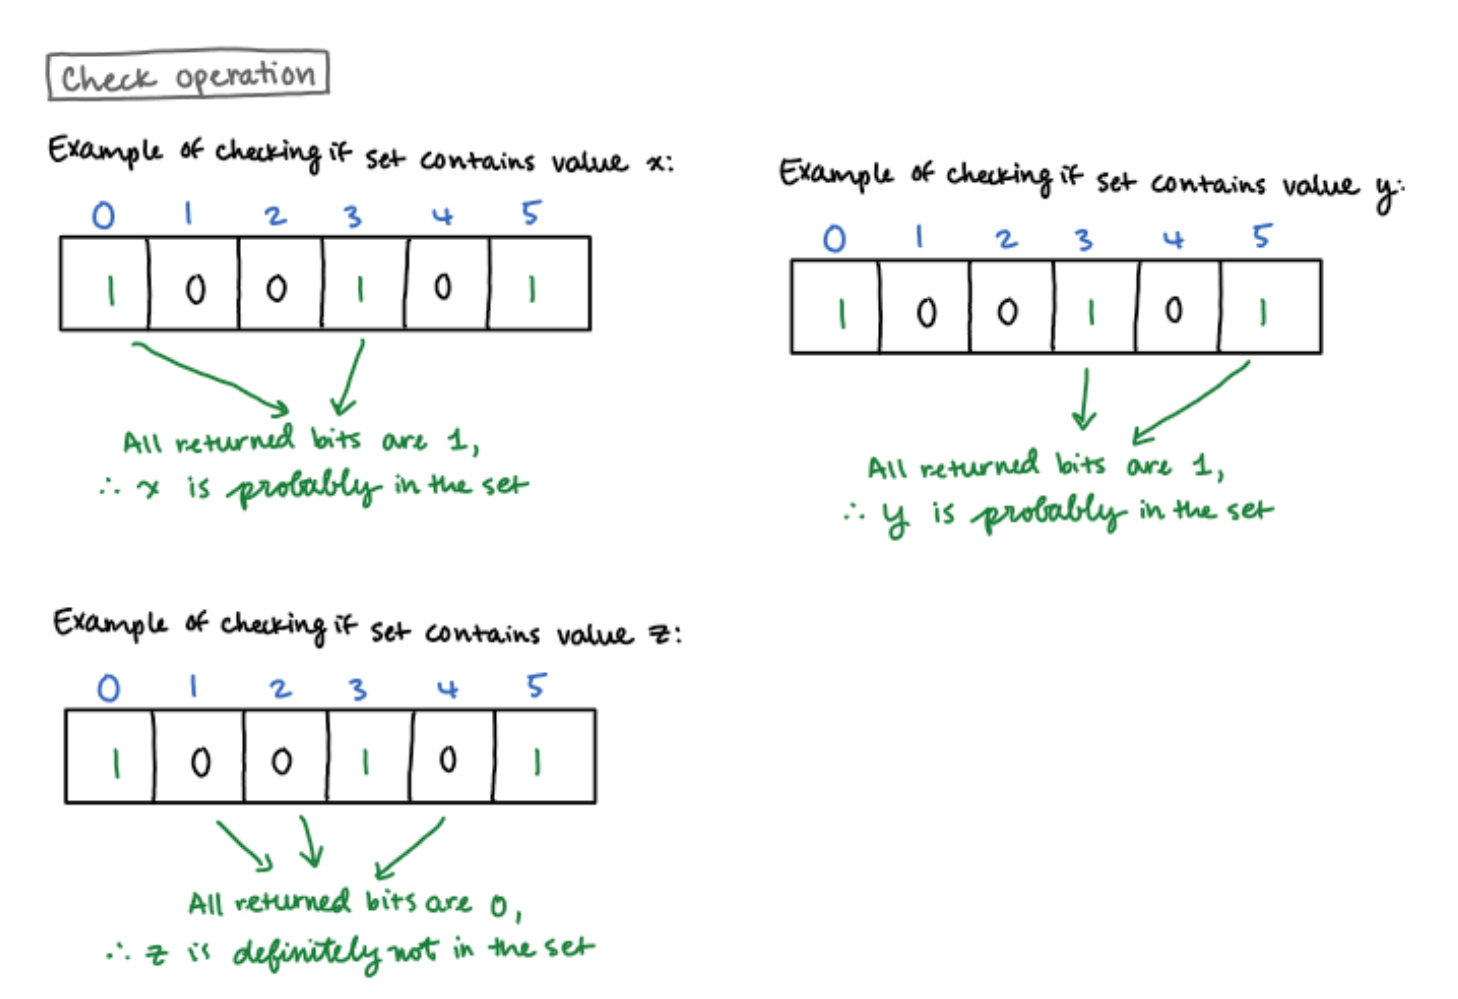 Check operation
Example of checking if set contains value x:
0 1 2 3 4 5
1 0 0 1 0 1
All returned bits are 1,
∴ x is probably in the set
Example of checking if set contains value y:
0 1 2 3 4 5
1 0 0 1 0 1
All returned bits are 1,
∴ y is probably in the set
Example of checking if set contains value z:
0 1 2 3 4 5
1 0 0 1 0 1
All returned bits are 0,
∴ z is definitely not in the set